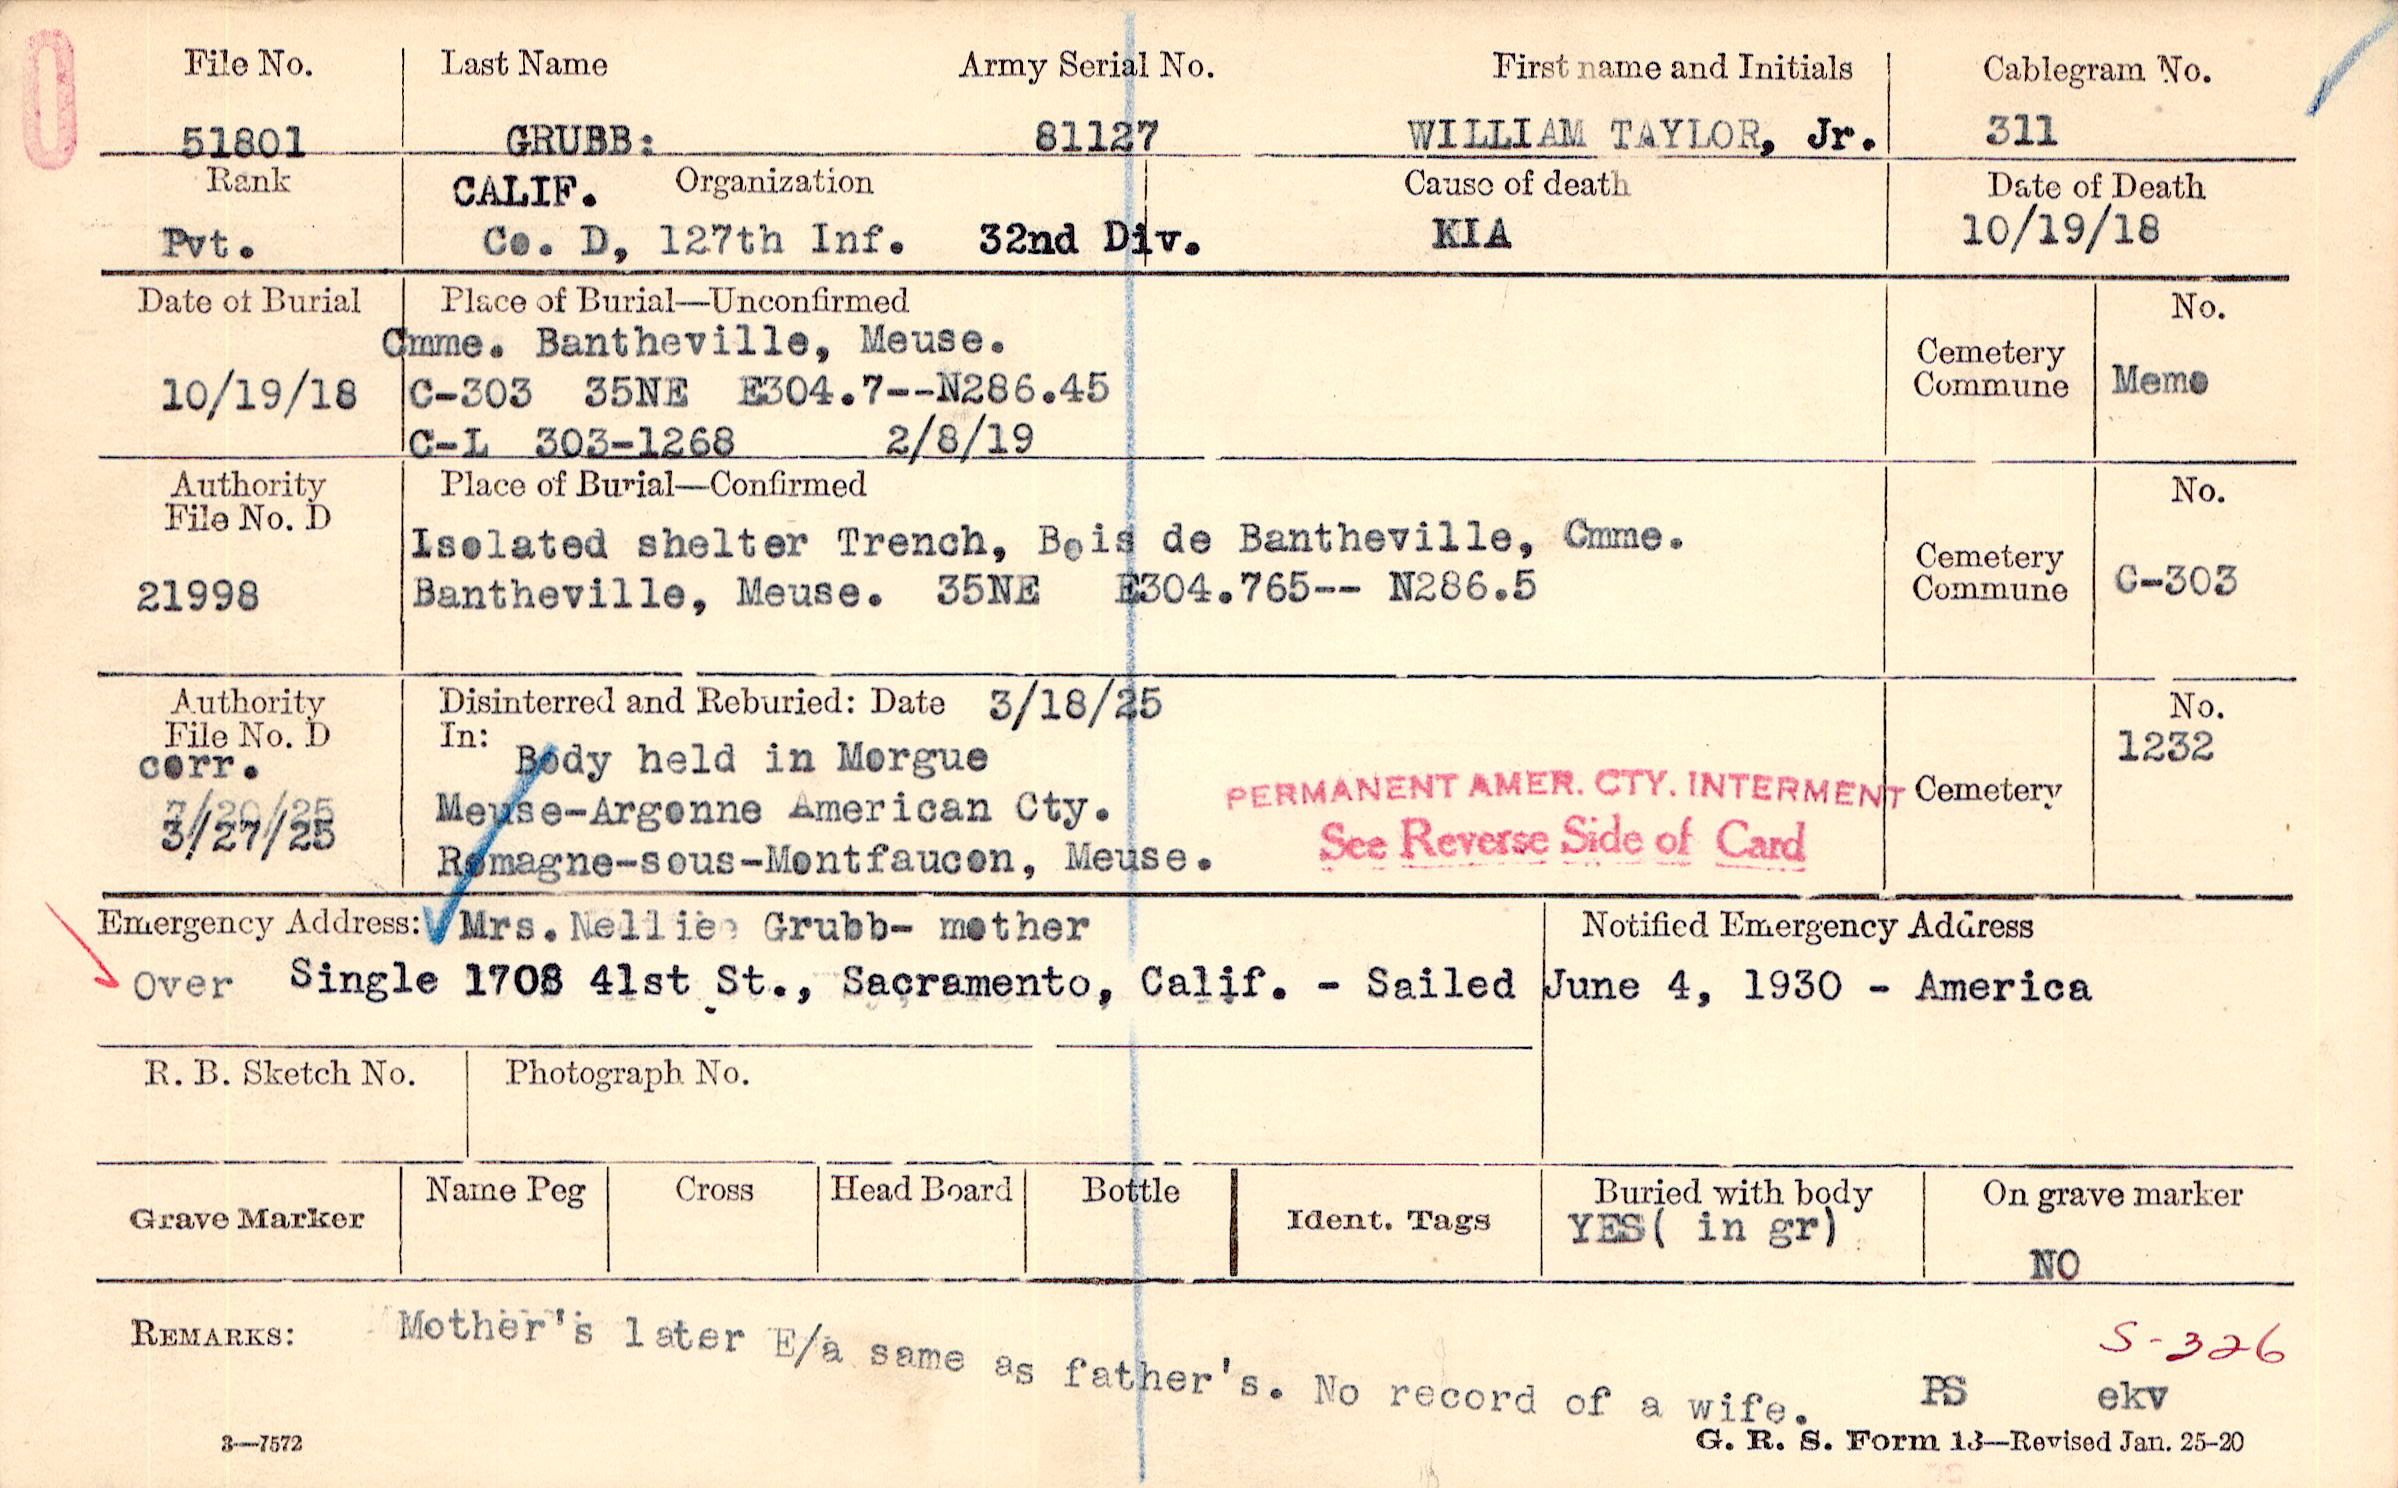 File No. Last Name Army Serial No. First name and Initials Cablegram No.
51801 GRUBB: 81127 WILLIAM TAYLOR, Jr. 311
Rank CALIF. Organization Cause of death Date of Death
Pvt. Co. D, 127th Inf. 32nd Div. KIA 10/19/18
Date of Burial Place of Burial—Unconfirmed No.
Cmme. Bantheville, Meuse.
Cemetery
Commune Memo
10/19/18 C-303 35NE E304.7--N286.45
C-L 303-1268 2/8/19
Authority Place of Burial—Confirmed No.
File No. D
Isolated shelter Trench, Bois de Bantheville, Cmme.
Cemetery
Commune C-303
21998 Bantheville, Meuse. 35NE E304.765-- N286.5
Authority Disinterred and Reburied: Date 3/18/25 No.
File No. D In: 1232
corr. Body held in Morgue
PERMANENT AMER. CTY. INTERMENT Cemetery
3/20/25 Meuse-Argonne American Cty.
3/27/25 See Reverse Side of Card
Romagne-sous-Montfaucon, Meuse.
Emergency Address: Mrs. Nellie Grubb- mother Notified Emergency Address
Over Single 1708 41st St., Sacramento, Calif. - Sailed June 4, 1930 - America
R. B. Sketch No. Photograph No.
Grave Marker Name Peg Cross Head Board Bottle Ident. Tags Buried with body On grave marker
YES( in gr) NO
REMARKS: Mother's later E/a same as father's. No record of a wife. PS ekv
S-326
3—7572 G. R. S. Form 13—Revised Jan. 25-20